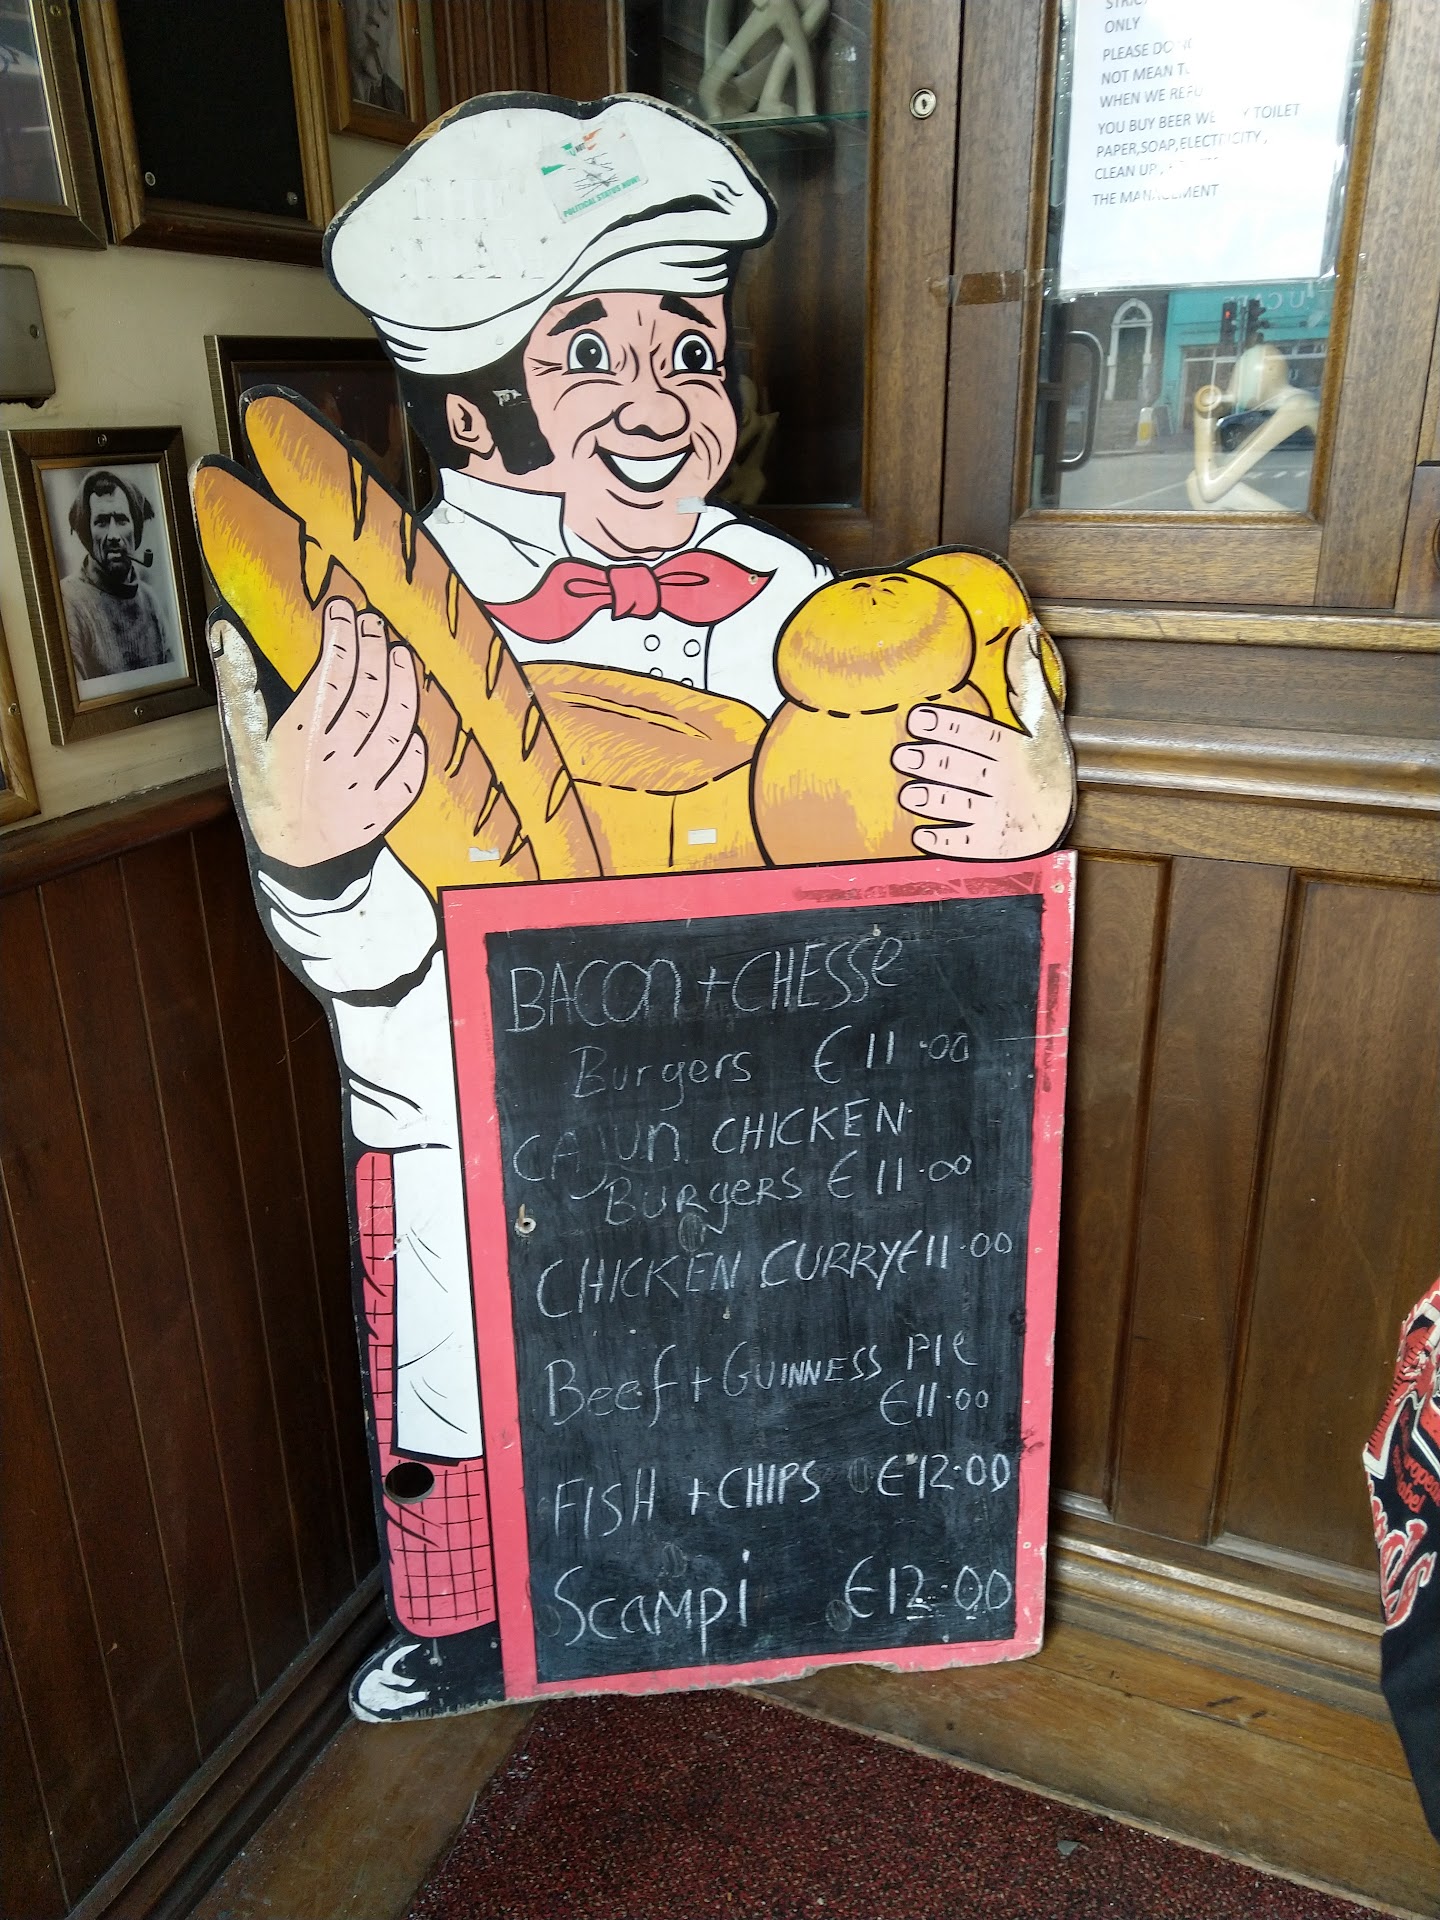 ONLY
PLEASE DO
NOT MEAN
WHEN WE
YOU BUY BEER TOILET
PAPER,SOAP,ELECTRICITY,
CLEAN UP
THE MANAGEMENT
POLITICAL STATUS NOW!
BACON + CHESSE
Burgers €11.00
CAJUN CHICKEN
BURgERS €11.00
CHICKEN CURRY €11.00
Beef + GUINNESS PIE
€11.00
FISH + CHIPS €12.00
SCAMPi €12.00